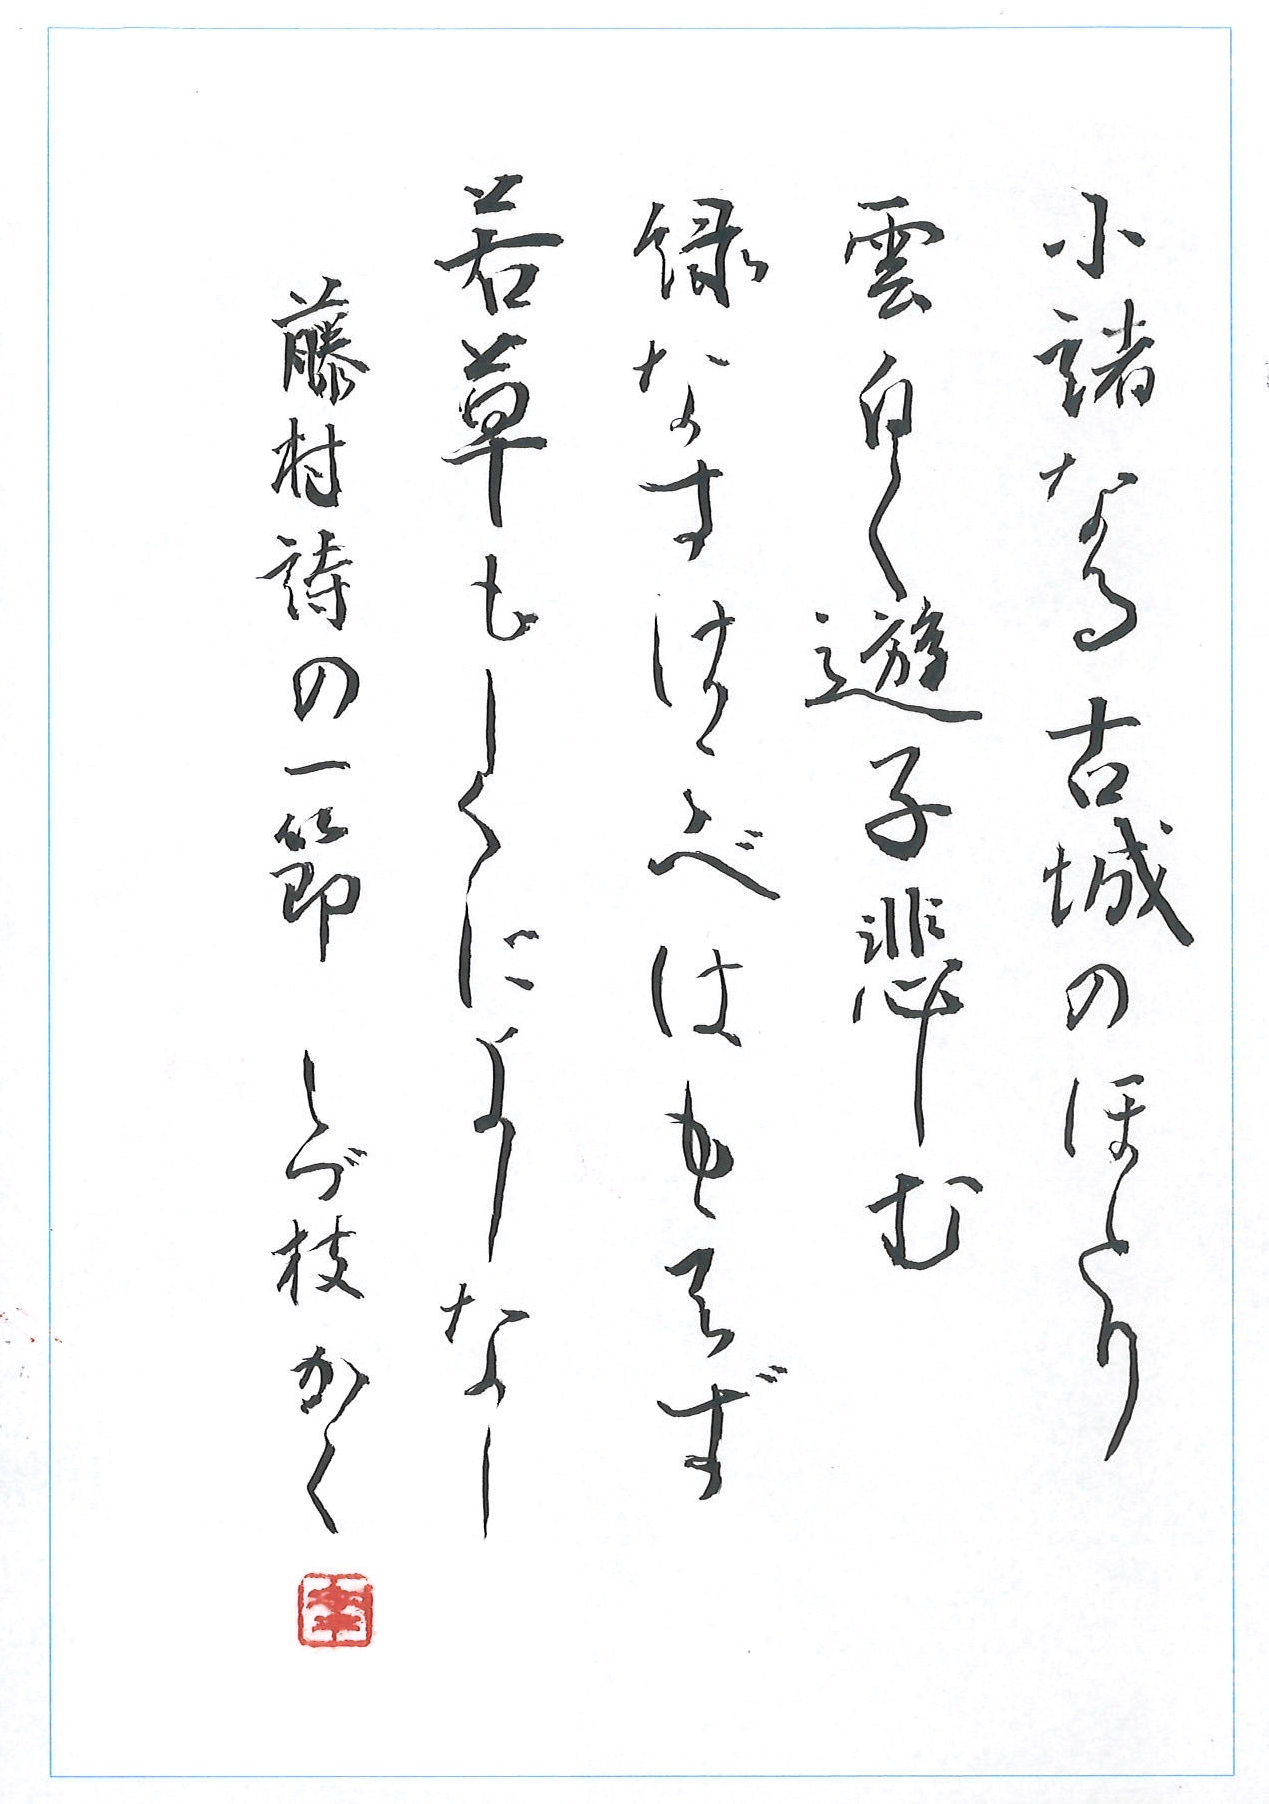 小諸なる古城のほとり
雲白く遊子悲しむ
緑なすはこべはもえず
若草もしくによしなし
藤村詩の一節 しづ枝かく